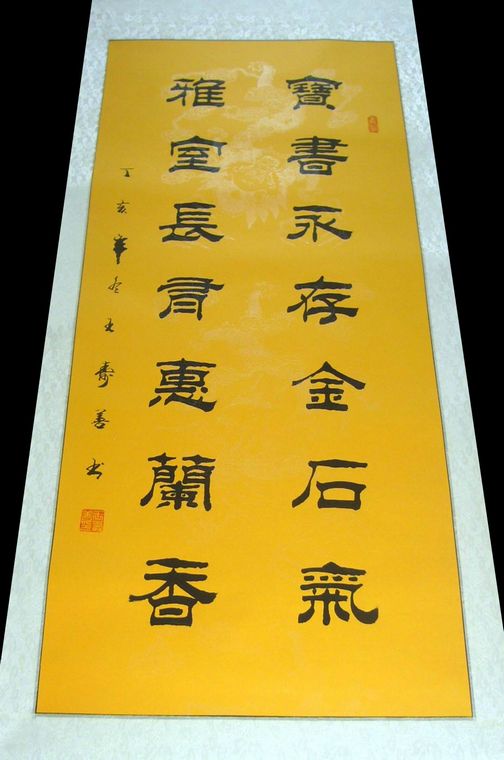 寶書永存金石氣
雅室長有惠蘭香
丁亥年冬王壽善书